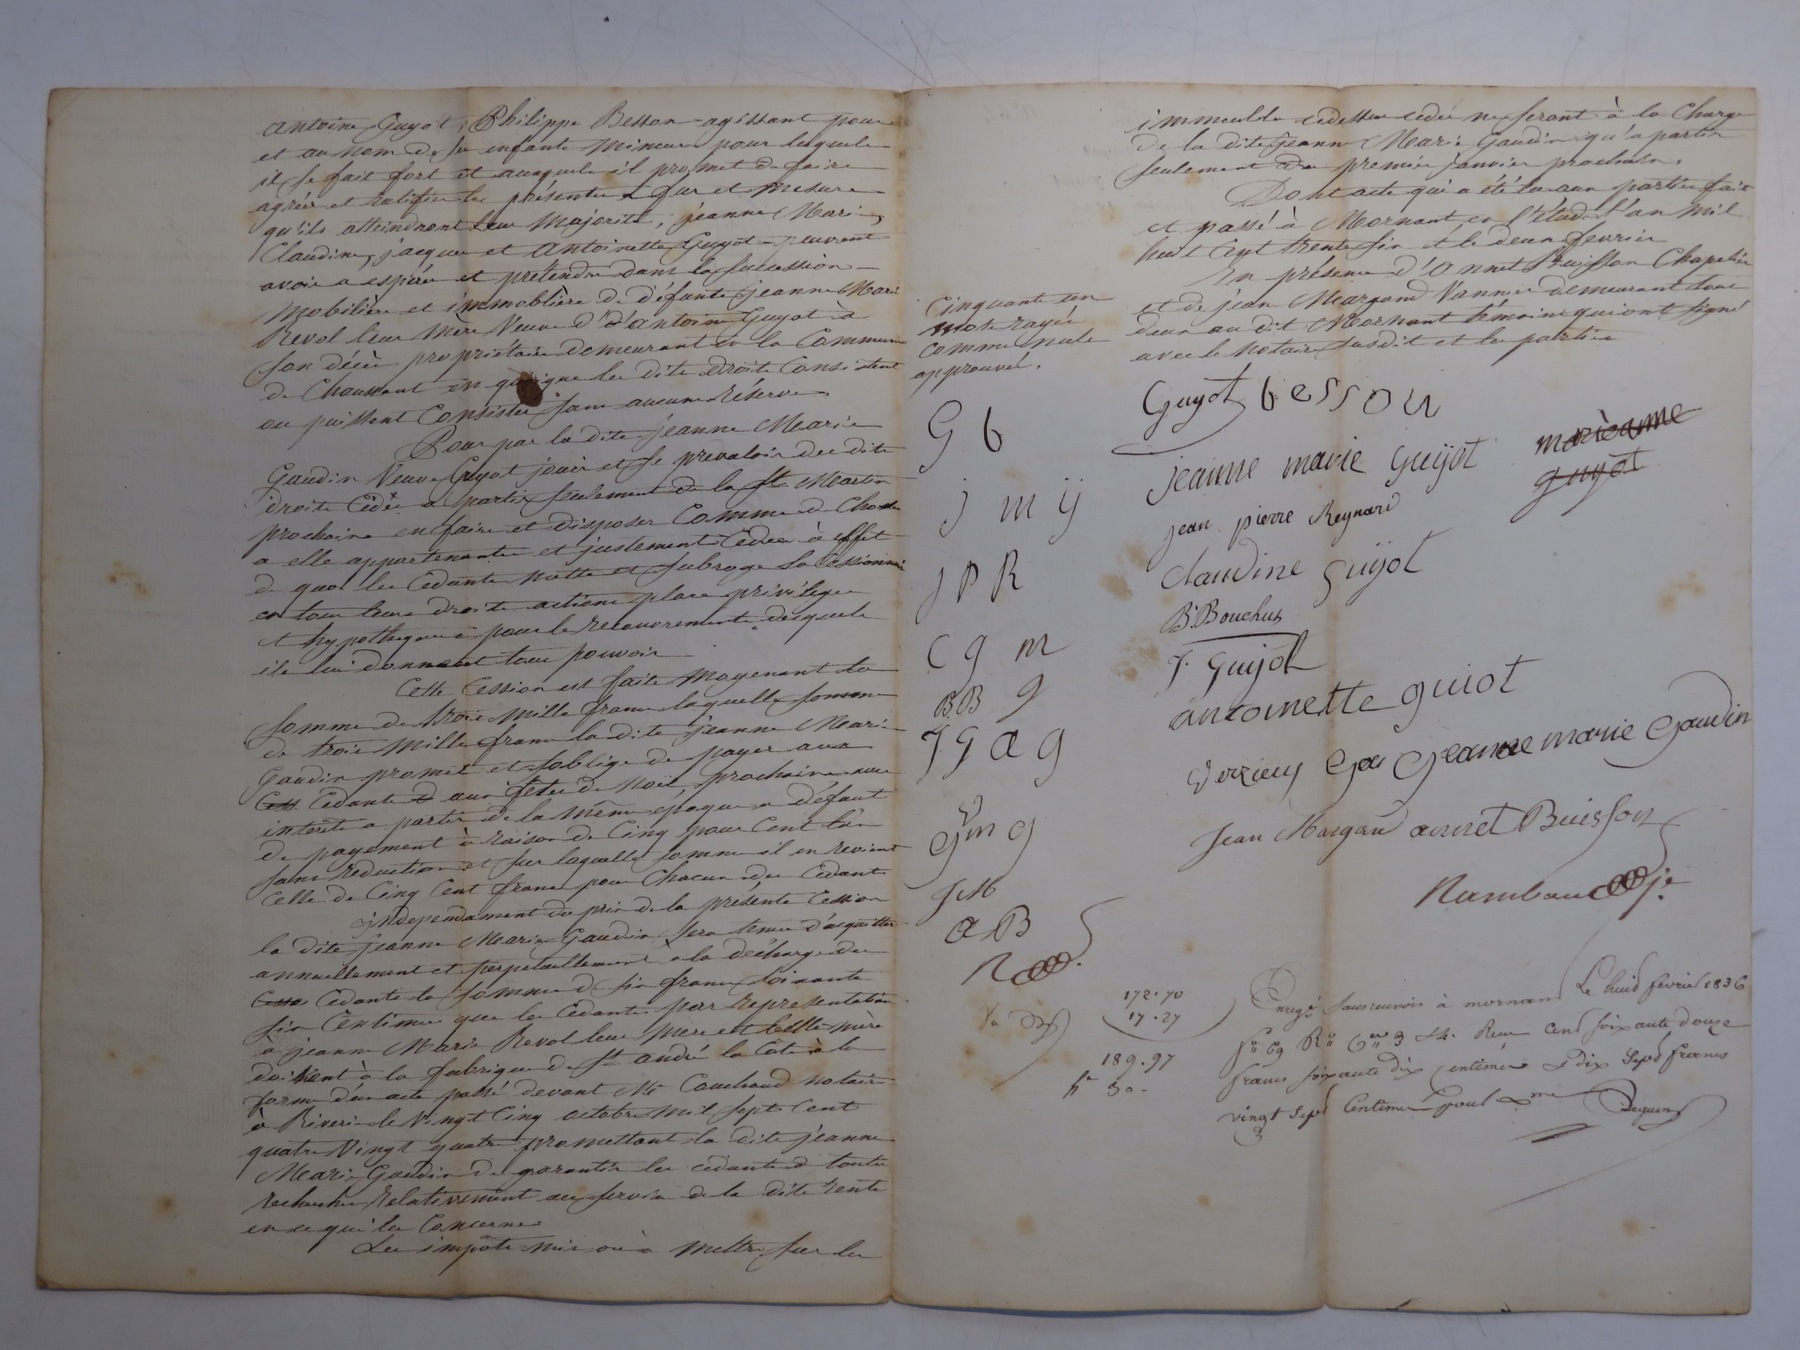 antoine Guyot, Philippe Besson agissant pour
et au nom de ses enfants mineurs pour lesquels
il se fait fort et auxquels il promet de faire
agréer et ratifier les présentes a fur et mesure
qu'ils atteindront leur majorité, jeanne Marie,
Claudine, jacques et antoinette Guyot peuvent
avoir a espérer et prétendre dans la succession
mobilière et immobilière de défunte jeanne Marie
Revol leur mère Veuve d'antoine Guyot a
son décès propriétaire demeurant en la Commune
de Chaussant en quoique les dits droits Consistent
ou puissent Consister sans aucune réserve
Pour par la dite jeanne Marie
Gaudin Veuve Guyot jouir et se prévaloir des dits
droits Cédés a partir seulement de la St Martin
prochaine en faire et disposer Comme de Chose
a elle appartenante et justement Cédée à effet
de quoi les Cédants mettent et subroge la Cessionnaire
en tous leurs droits actions place privilèges
et hypothèques pour le recouvrement desquels
ils lui donnent tous pouvoir
Cette Cession est faite moyenant la
somme de trois mille francs laquelle somme
de trois mille francs la dite jeanne Marie
Gaudin promet et s'oblige de payer aux
Cedants aux fêtes de noël prochaine avec
interets a partir de la même époque a défaut
de payement à raison de Cinq pour Cent l'an
sans réduction et sur laquelle somme il en revient
celle de Cinq Cent francs pour Chacun des Cédants
independament du prix de la présente Cession
la dite jeanne Marie Gaudin sera tenue d'acquitter
annuellement et perpetuellement a la décharge des
Cedants la somme de six francs soixante
six Centimes que les Cédants par représentation
à jeanne Marie Revol leur mère et belle mère
doivent à la fabrique de St andré la Côte à la
forme d'un acte passé devant Me Couchoud notaire
à Riverie le Vingt Cinq octobre mil sept cent
quatre Vingt quatre promettant la dite jeanne
Marie Gaudin de garantir les cedants de toutes
recherches relativement au service de la dite rente
en ce qui les Concerne
Les impôts mis ou à mettre sur les
Cinquante un
mots rayés
comme nuls
approuvés.
G b
j m ij
J P R
C g m
B.B g
J g a g
V
g m g
J M
a B
R
172.70
17.27
189.97
30.
immeubles cedessus cédés ne seront à la Charge
de la dite jeanne Marie Gaudin qu'a partir
seulement du premier janvier prochain.
Dont acte qui a été lu aux parties fait
et passé à Mornant en l'Étude l'an mil
huit Cent trente six et le deux fevrier
En présence d'annet Buisson Chapelier
et de jean Margand Vannier demeurant tous
deux au dit Mornant témoins qui ont signé
avec le notaire susdit et les parties
Guyot besson
jeanne marie Guijot
marieanne
guyot
jean pierre Reynard
claudine guijot
B. Bouchus
J. Guijot
antoinette guiot
jeanne marie Gaudin
Jean Margand annet Buisson
Rambaud je
Enregé sans renvois à mornant Le huit fevrier 1836
fo 69 Ro Ces 3 & 4. Reçu cent soixante douze
francs soixante dix centimes & dix sept francs
vingt sept Centimes pour dme